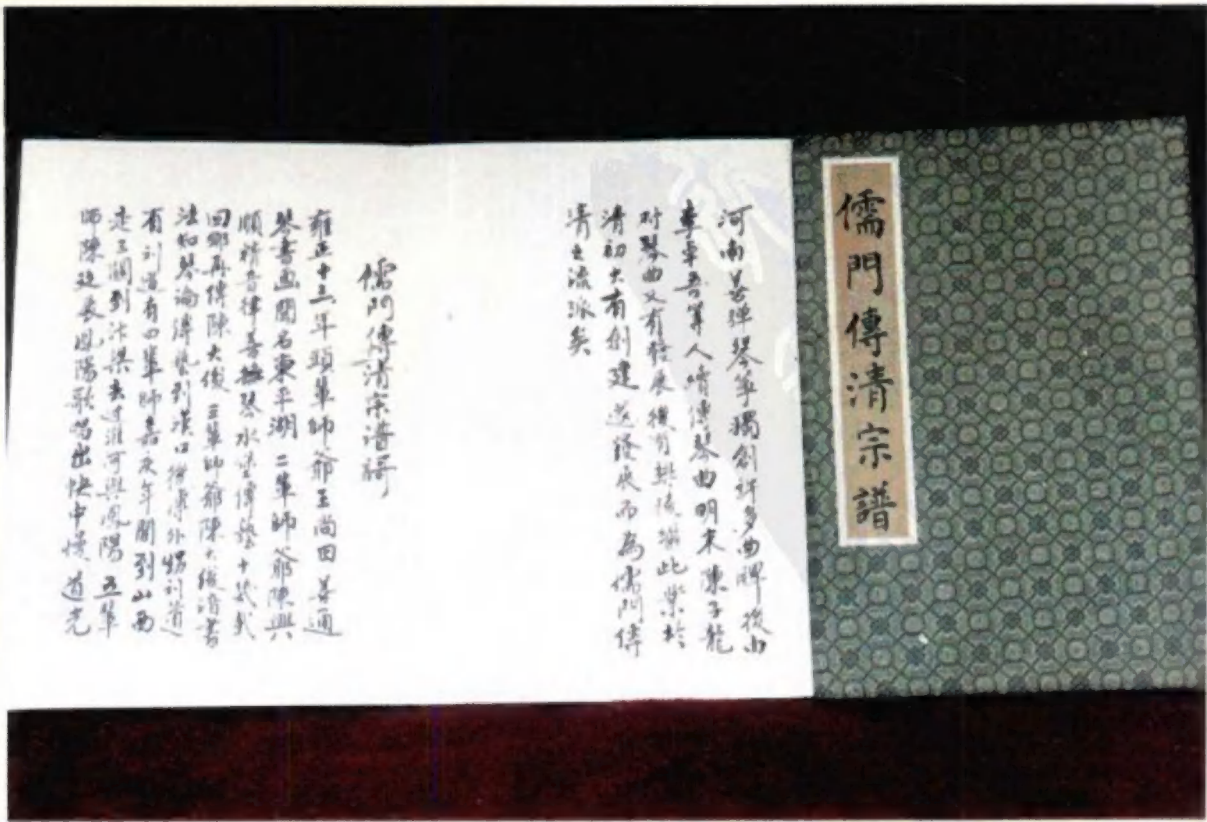 儒門傳清宗譜
河南善彈琴箏獨創許多曲牌後由
李卓吾等人唷傳琴曲明末陳子龍
对琴曲又有發展後有興後嵛此柴於
清初大有創建送發展而為儒門傳
清之流派矣
儒門傳清宗譜
雍正十三年頭輩師爺王尚田善通
琴書画聞名東平湖 二輩師爺陳興
順精音律善操琴水里傳藝十幾載
回鄉再傳陳大俊 三輩師爺陳大俊清書
法知琴論傳藝到漢口後康外甥刘道
有刘道有四輩師嘉庆年間到山西
走三関到汴梁去过淮河興鳳陽 五輩
師陳廷良鳳陽歌唱出快中慢 道光